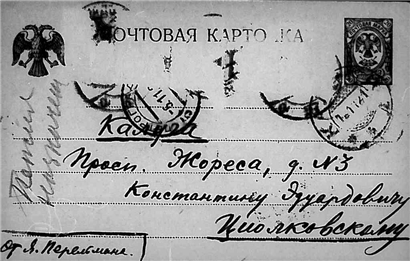 ПОЧТОВАЯ КАРТОЧКА
Калуга
Просп. Жореса, д. №3
Константину Эдуардовичу
Циолковскому
От Я. Перельмана.